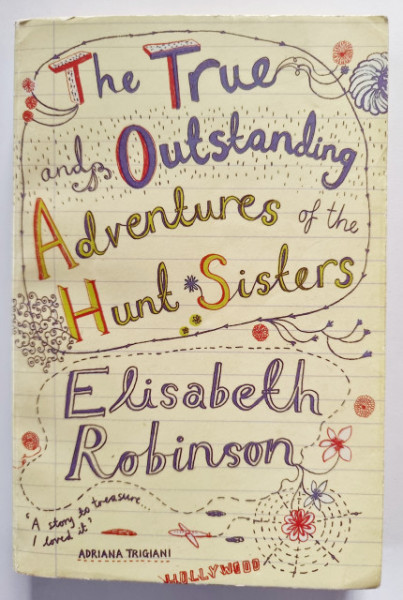 The True
and Outstanding
Adventures of the
Hunt Sisters
Elisabeth
Robinson
'A story to treasure...
I loved it'
ADRIANA TRIGIANI
HOLLYWOOD